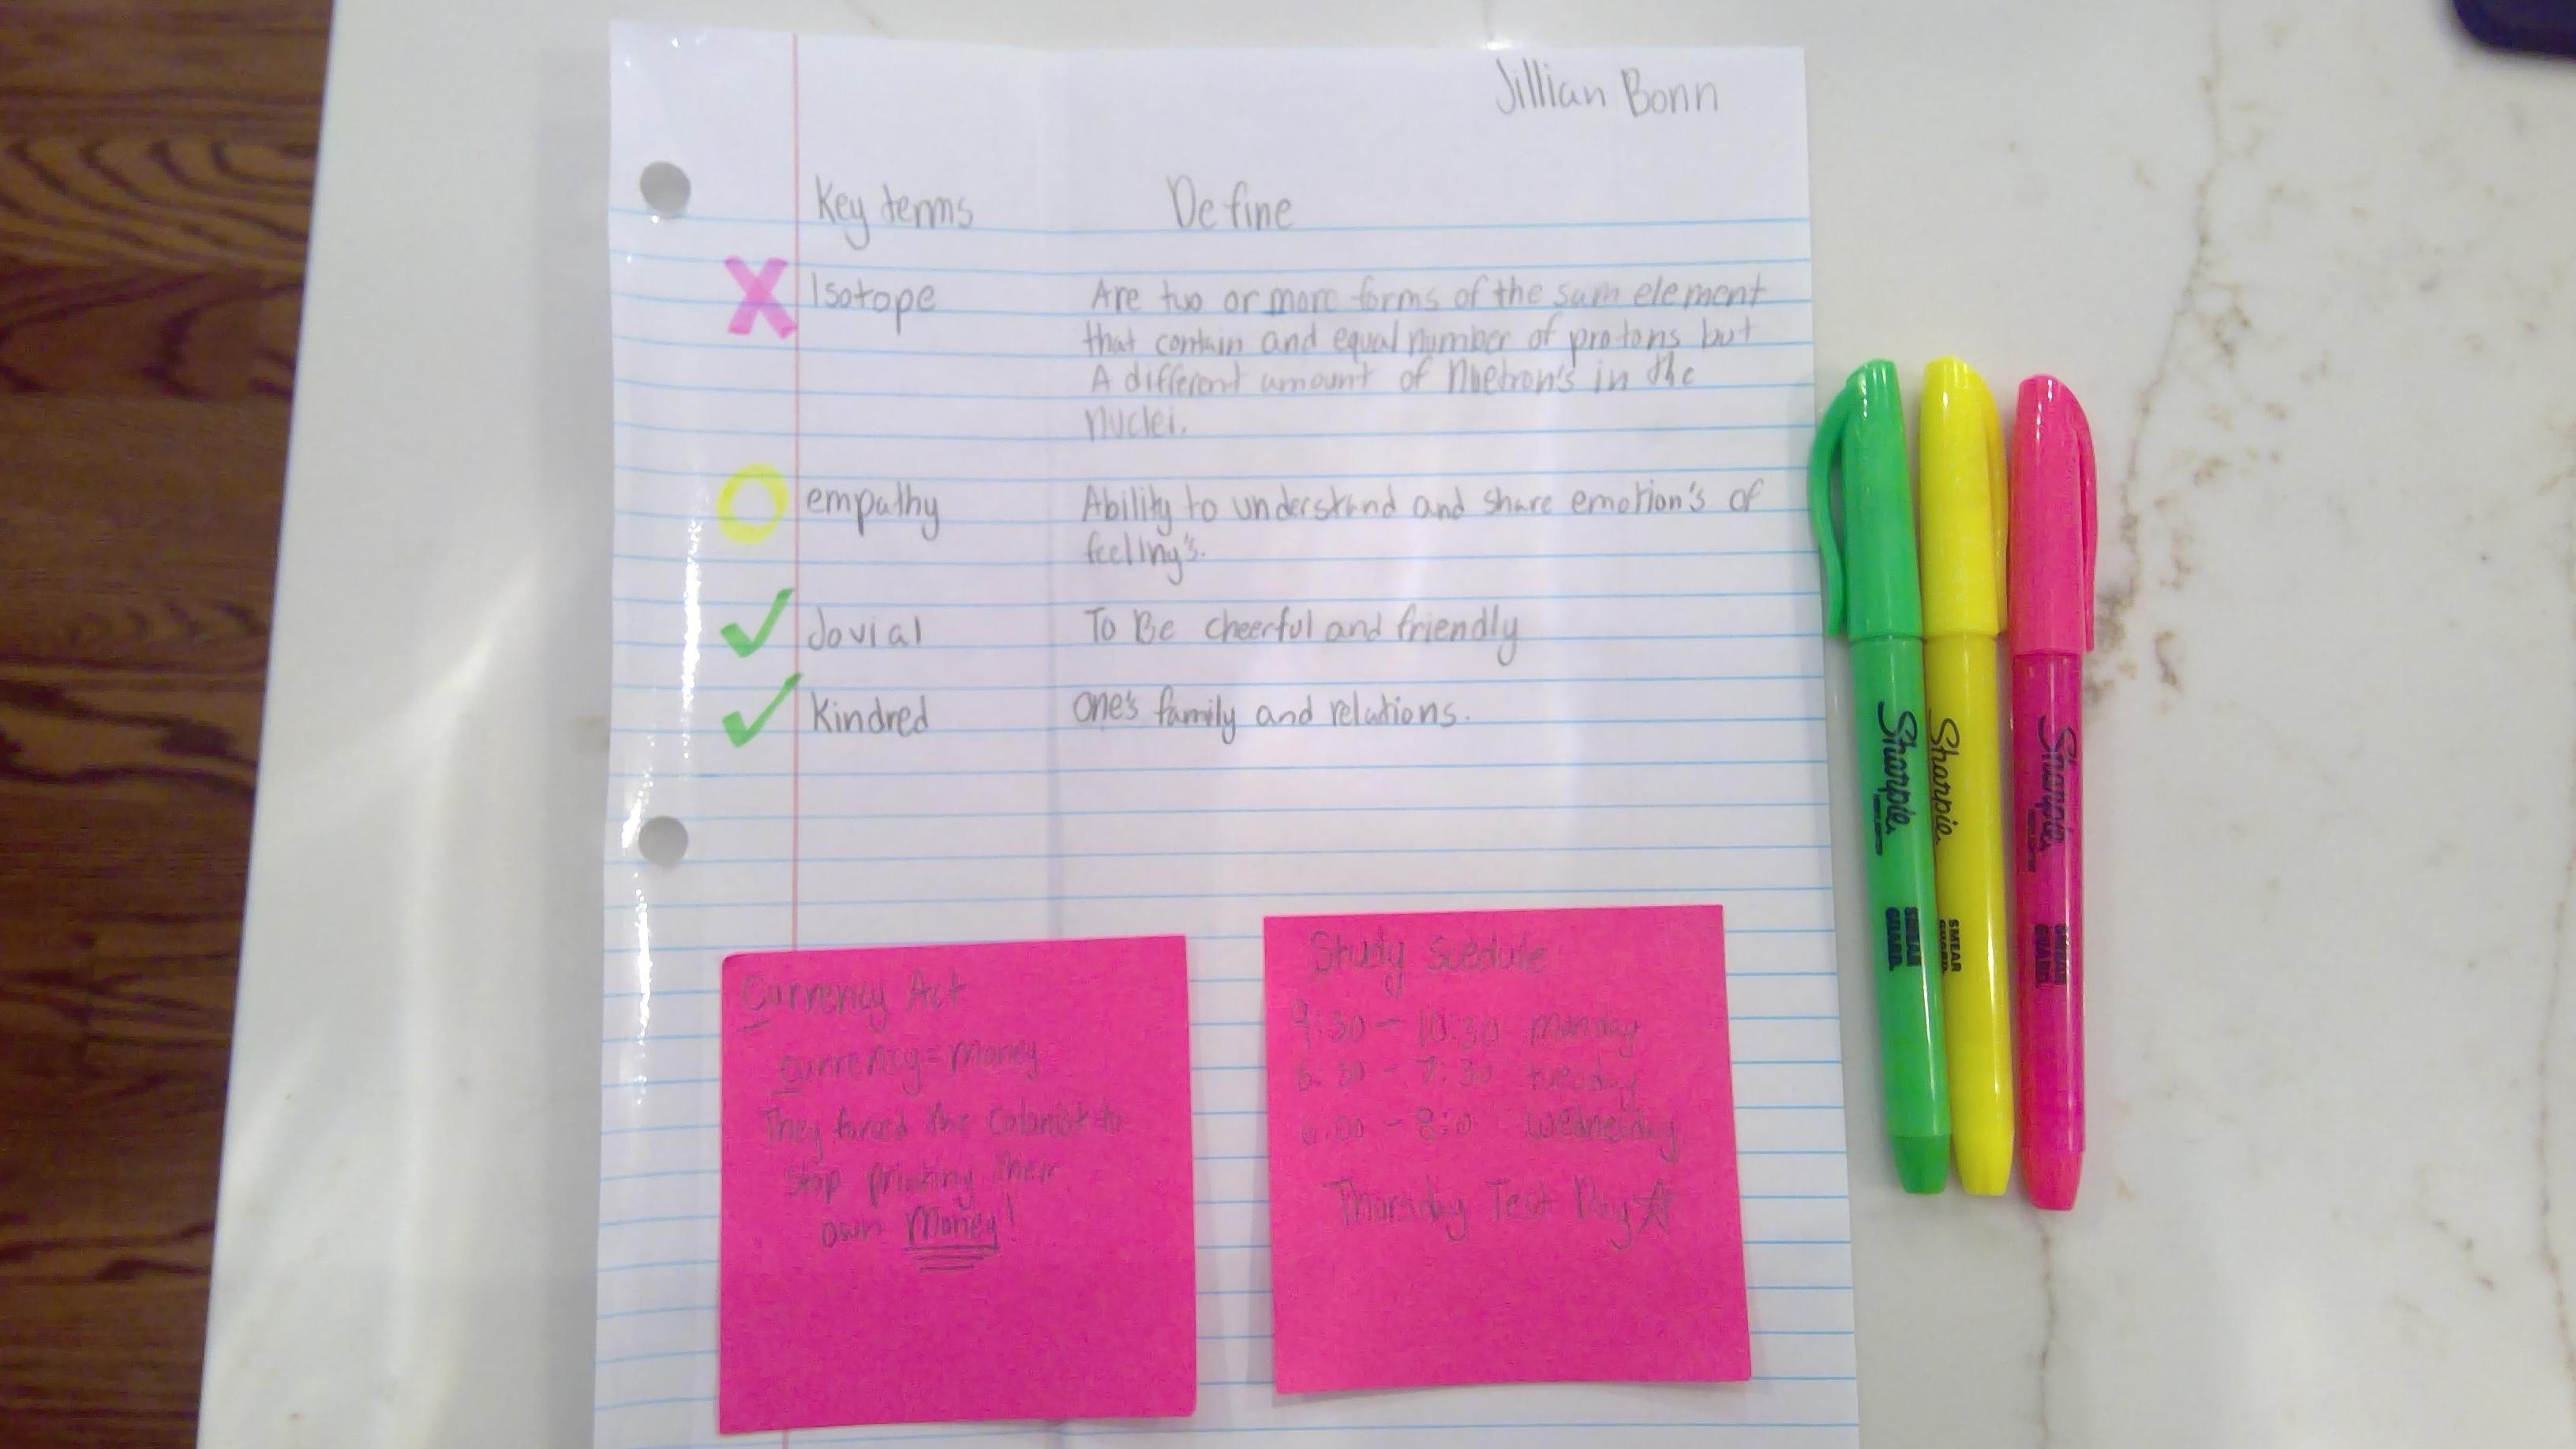 Jillian Bonn
Key terms Define
Isotope Are two or more forms of the sum element
that contain and equal number of protons but
A different amount of Nuetron's in the
Nuclei.
empathy Ability to understand and share emotion's of
feeling's.
Jovial To Be cheerful and friendly
Kindred one's family and relations.
Currency Act
currency = Money
They forced the Colonist to
stop printing their
own Money!
Study Scedule
9:30 - 10:30 monday
6:30 - 7:30 tuesday
6:00 - 8:0 wednesday
Thursday Test Day
Sharpie
SMEAR
GUARD
Sharpie
SMEAR
GUARD
Sharpie
SMEAR
GUARD